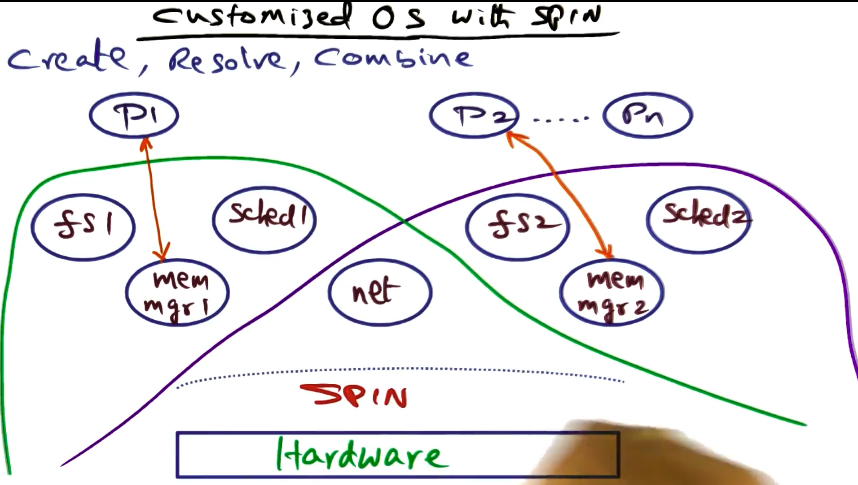 Customized OS with SPIN
Create, Resolve, Combine
P1 P2 ..... Pn
fs1 sched1 fs2 sched2
mem mgr1 net mem mgr2
SPIN
Hardware